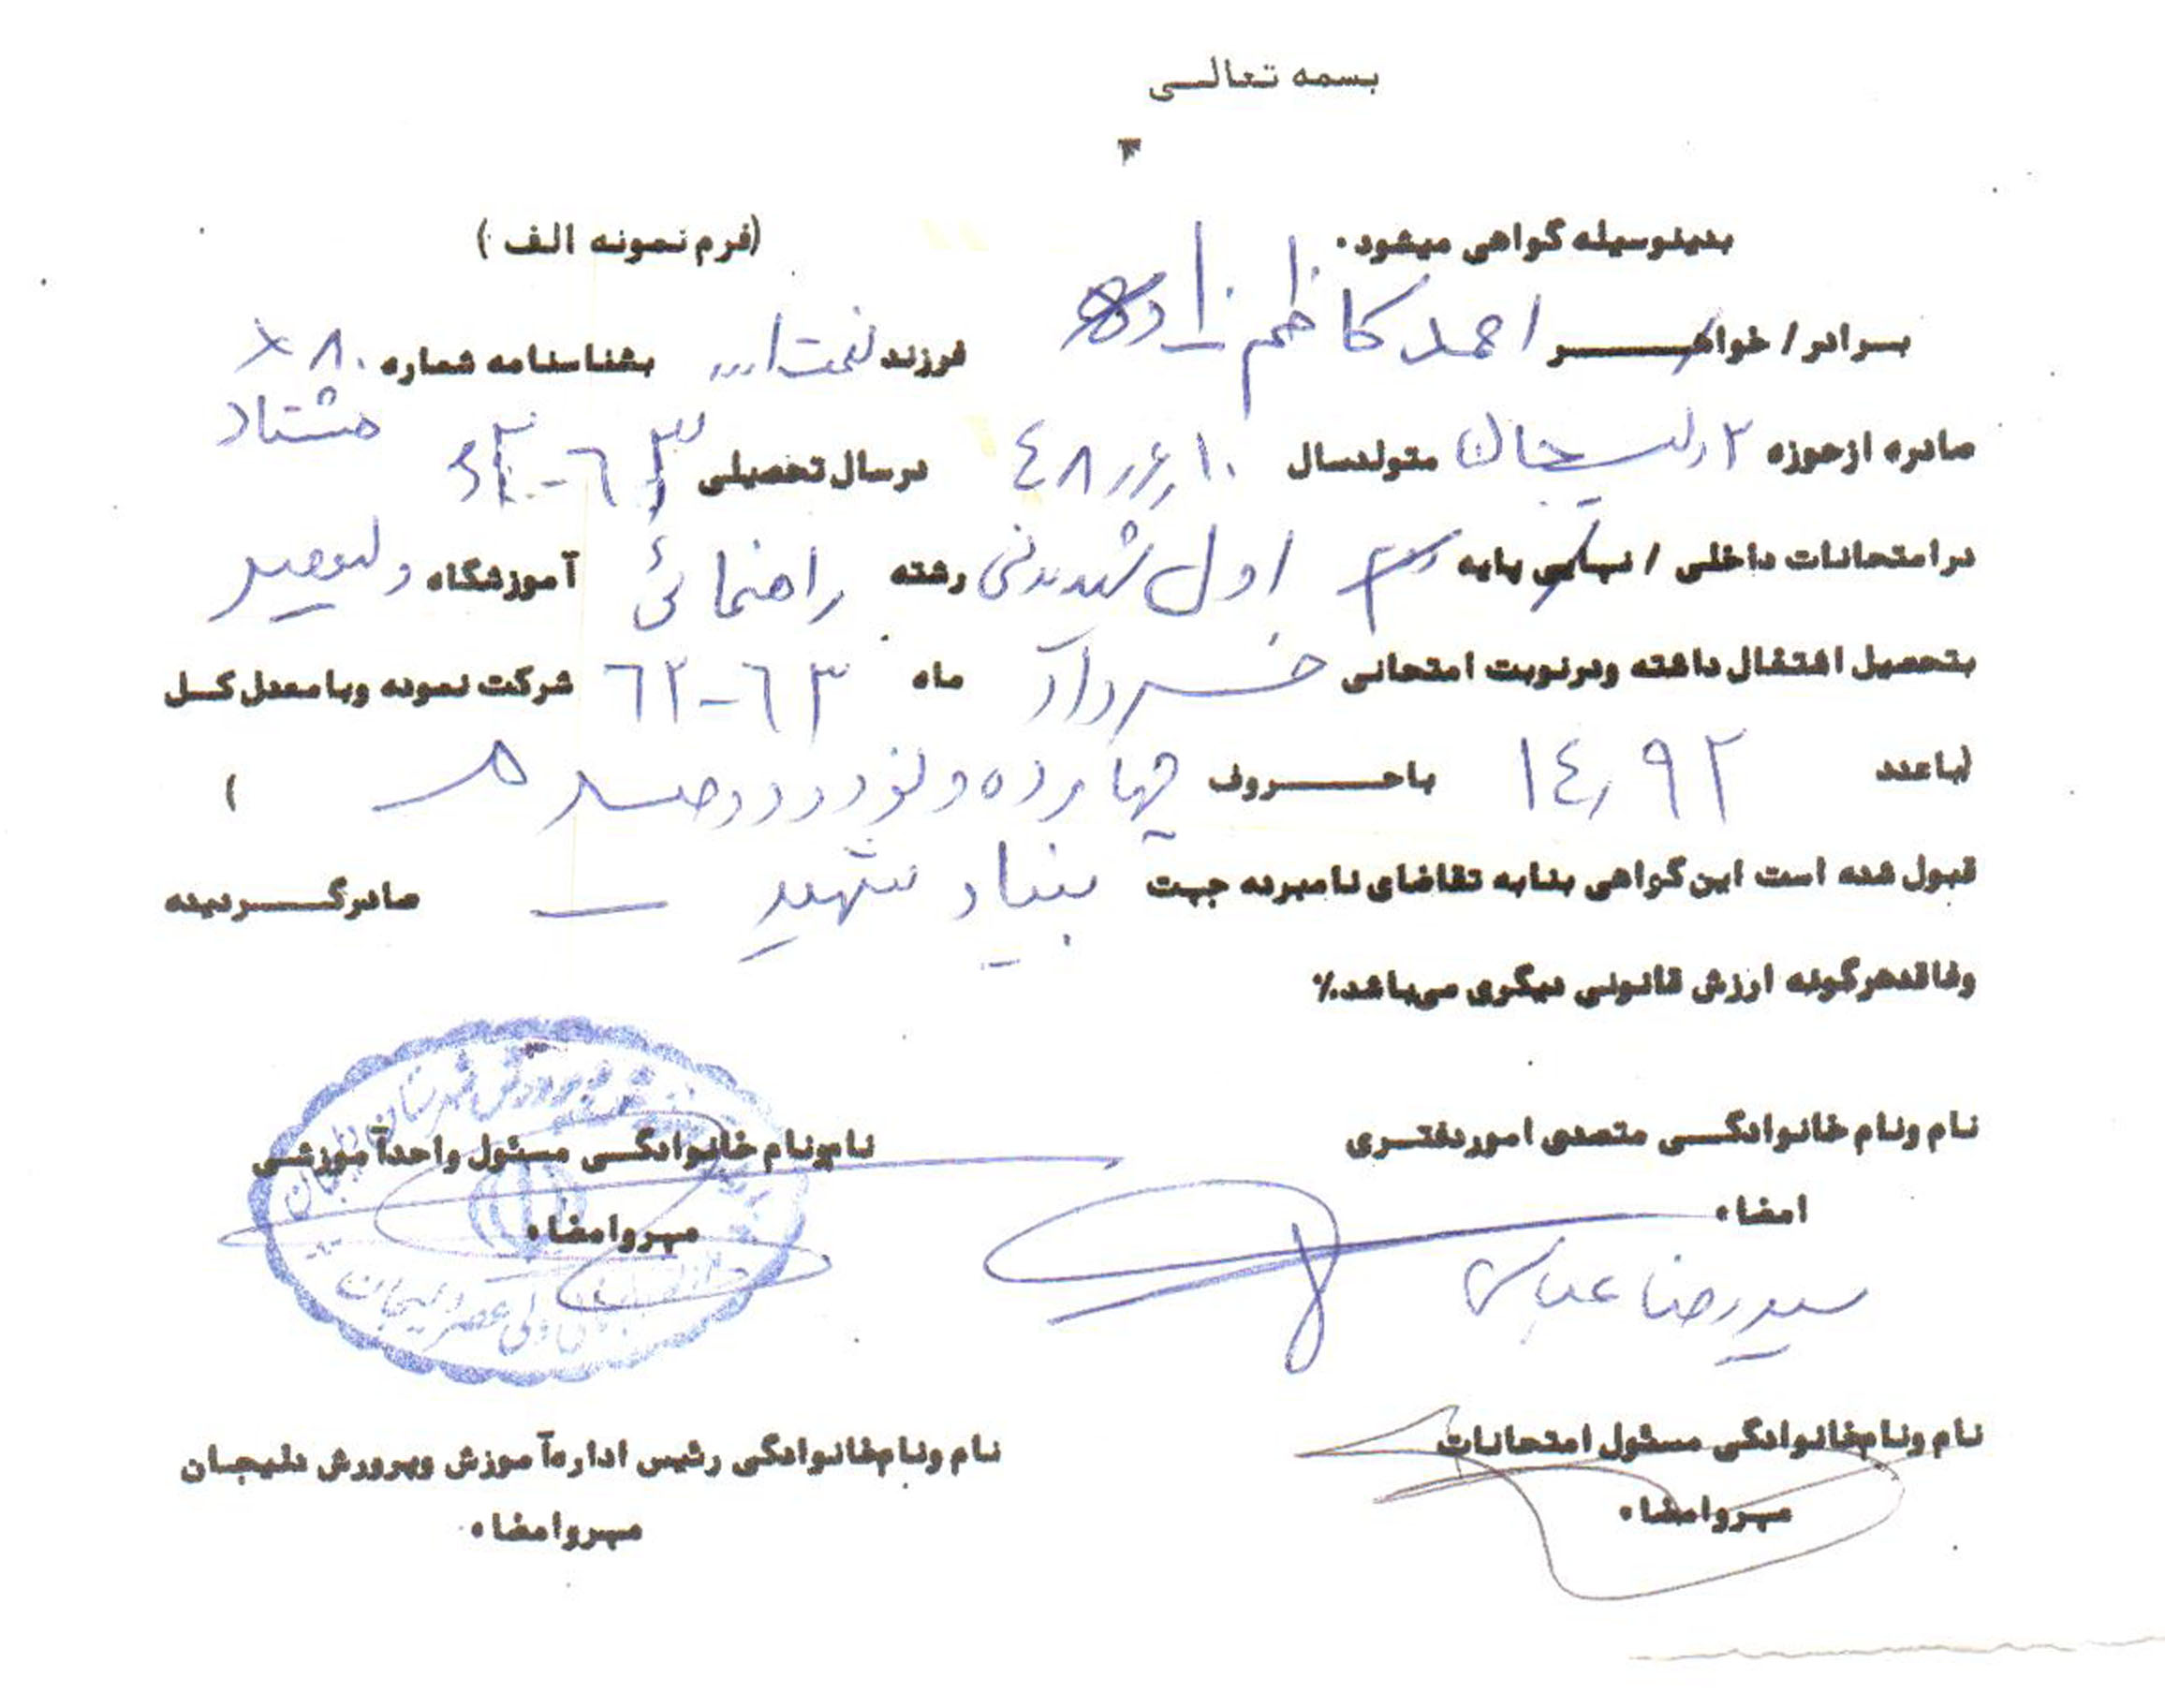 بسمه تعالی
بدینوسیله گواهی میشود. (فرم نمونه الف)
برادر / خواهر احمد کاظم زاده فرزند نعمت ا... بشناسنامه شماره ۸۰ ×
هشتاد
صادره ازحوزه ۲ دلیجان متولدسال ۴۸/۶/۱۰ درسال تحصیلی ۶۳-۶۲
درامتحانات داخلی / نهایی پایه اول رشته راهنمائی آموزشگاه ولیعصر
بتحصیل اشتغال داشته ودرنوبت امتحانی خرداد ماه ۶۳-۶۲ شرکت نموده وبا معدل کل
(باعدد ۱۴/۹۲ باحروف چهارده و نود و دو صدم )
قبول شده است این گواهی بنابه تقاضای نامبرده جهت بنیاد شهید صادرگردیده
وفاقدهرگونه ارزش قانونی دیگری می‌باشد٪
نام ونام خانوادگی متصدی اموردفتری نام ونام خانوادگی مسئول واحدآموزشی
امضاء مهروامضاء
سید رضا عباسی
ولی عصر دلیجان
نام ونام‌خانوادگی مسئول امتحانات نام ونام‌خانوادگی رئیس اداره‌آموزش وپرورش دلیجان
مهروامضاء مهروامضاء